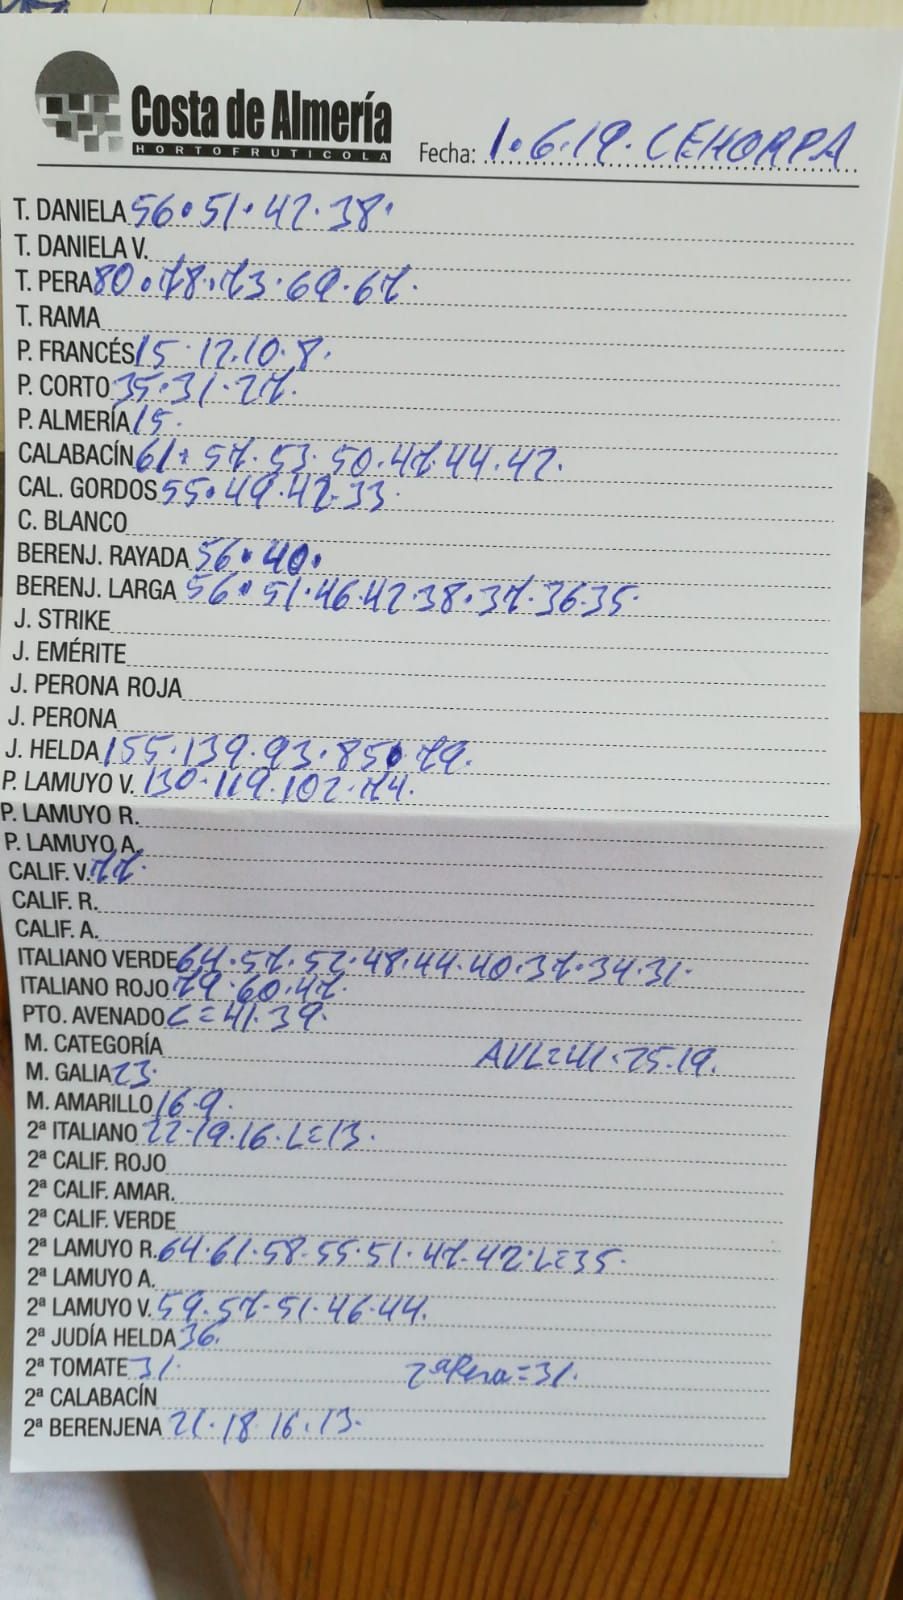 Costa de Almería
HORTOFRUTICOLA
Fecha: 1.6.19. CEHORPA
T. DANIELA 56.51.42.38.
T. DANIELA V.
T. PERA 80.78.73.69.67.
T. RAMA
P. FRANCÉS 15.12.10.8.
P. CORTO 35.31.27.
P. ALMERÍA 15.
CALABACÍN 61.57.53.50.47.44.42.
CAL. GORDOS 55.49.42.33.
C. BLANCO
BERENJ. RAYADA 56.40.
BERENJ. LARGA 56.51.46.42.38.37.36.35.
J. STRIKE
J. EMÉRITE
J. PERONA ROJA
J. PERONA
J. HELDA 155.139.93.85.79.
P. LAMUYO V. 130.119.102.74.
P. LAMUYO R.
P. LAMUYO A.
CALIF. V. 77.
CALIF. R.
CALIF. A.
ITALIANO VERDE 64.57.52.48.44.40.37.34.31.
ITALIANO ROJO 79.60.47.
PTO. AVENADO C=41.39.
M. CATEGORÍA AVL=41.25.19.
M. GALIA 23.
M. AMARILLO 16.9.
2ª ITALIANO 22.19.16.L=13.
2ª CALIF. ROJO
2ª CALIF. AMAR.
2ª CALIF. VERDE
2ª LAMUYO R. 64.61.58.55.51.47.42.L=35.
2ª LAMUYO A.
2ª LAMUYO V. 59.57.51.46.44.
2ª JUDÍA HELDA 36.
2ª TOMATE 31. 2ª Pera=31.
2ª CALABACÍN
2ª BERENJENA 21.18.16.13.